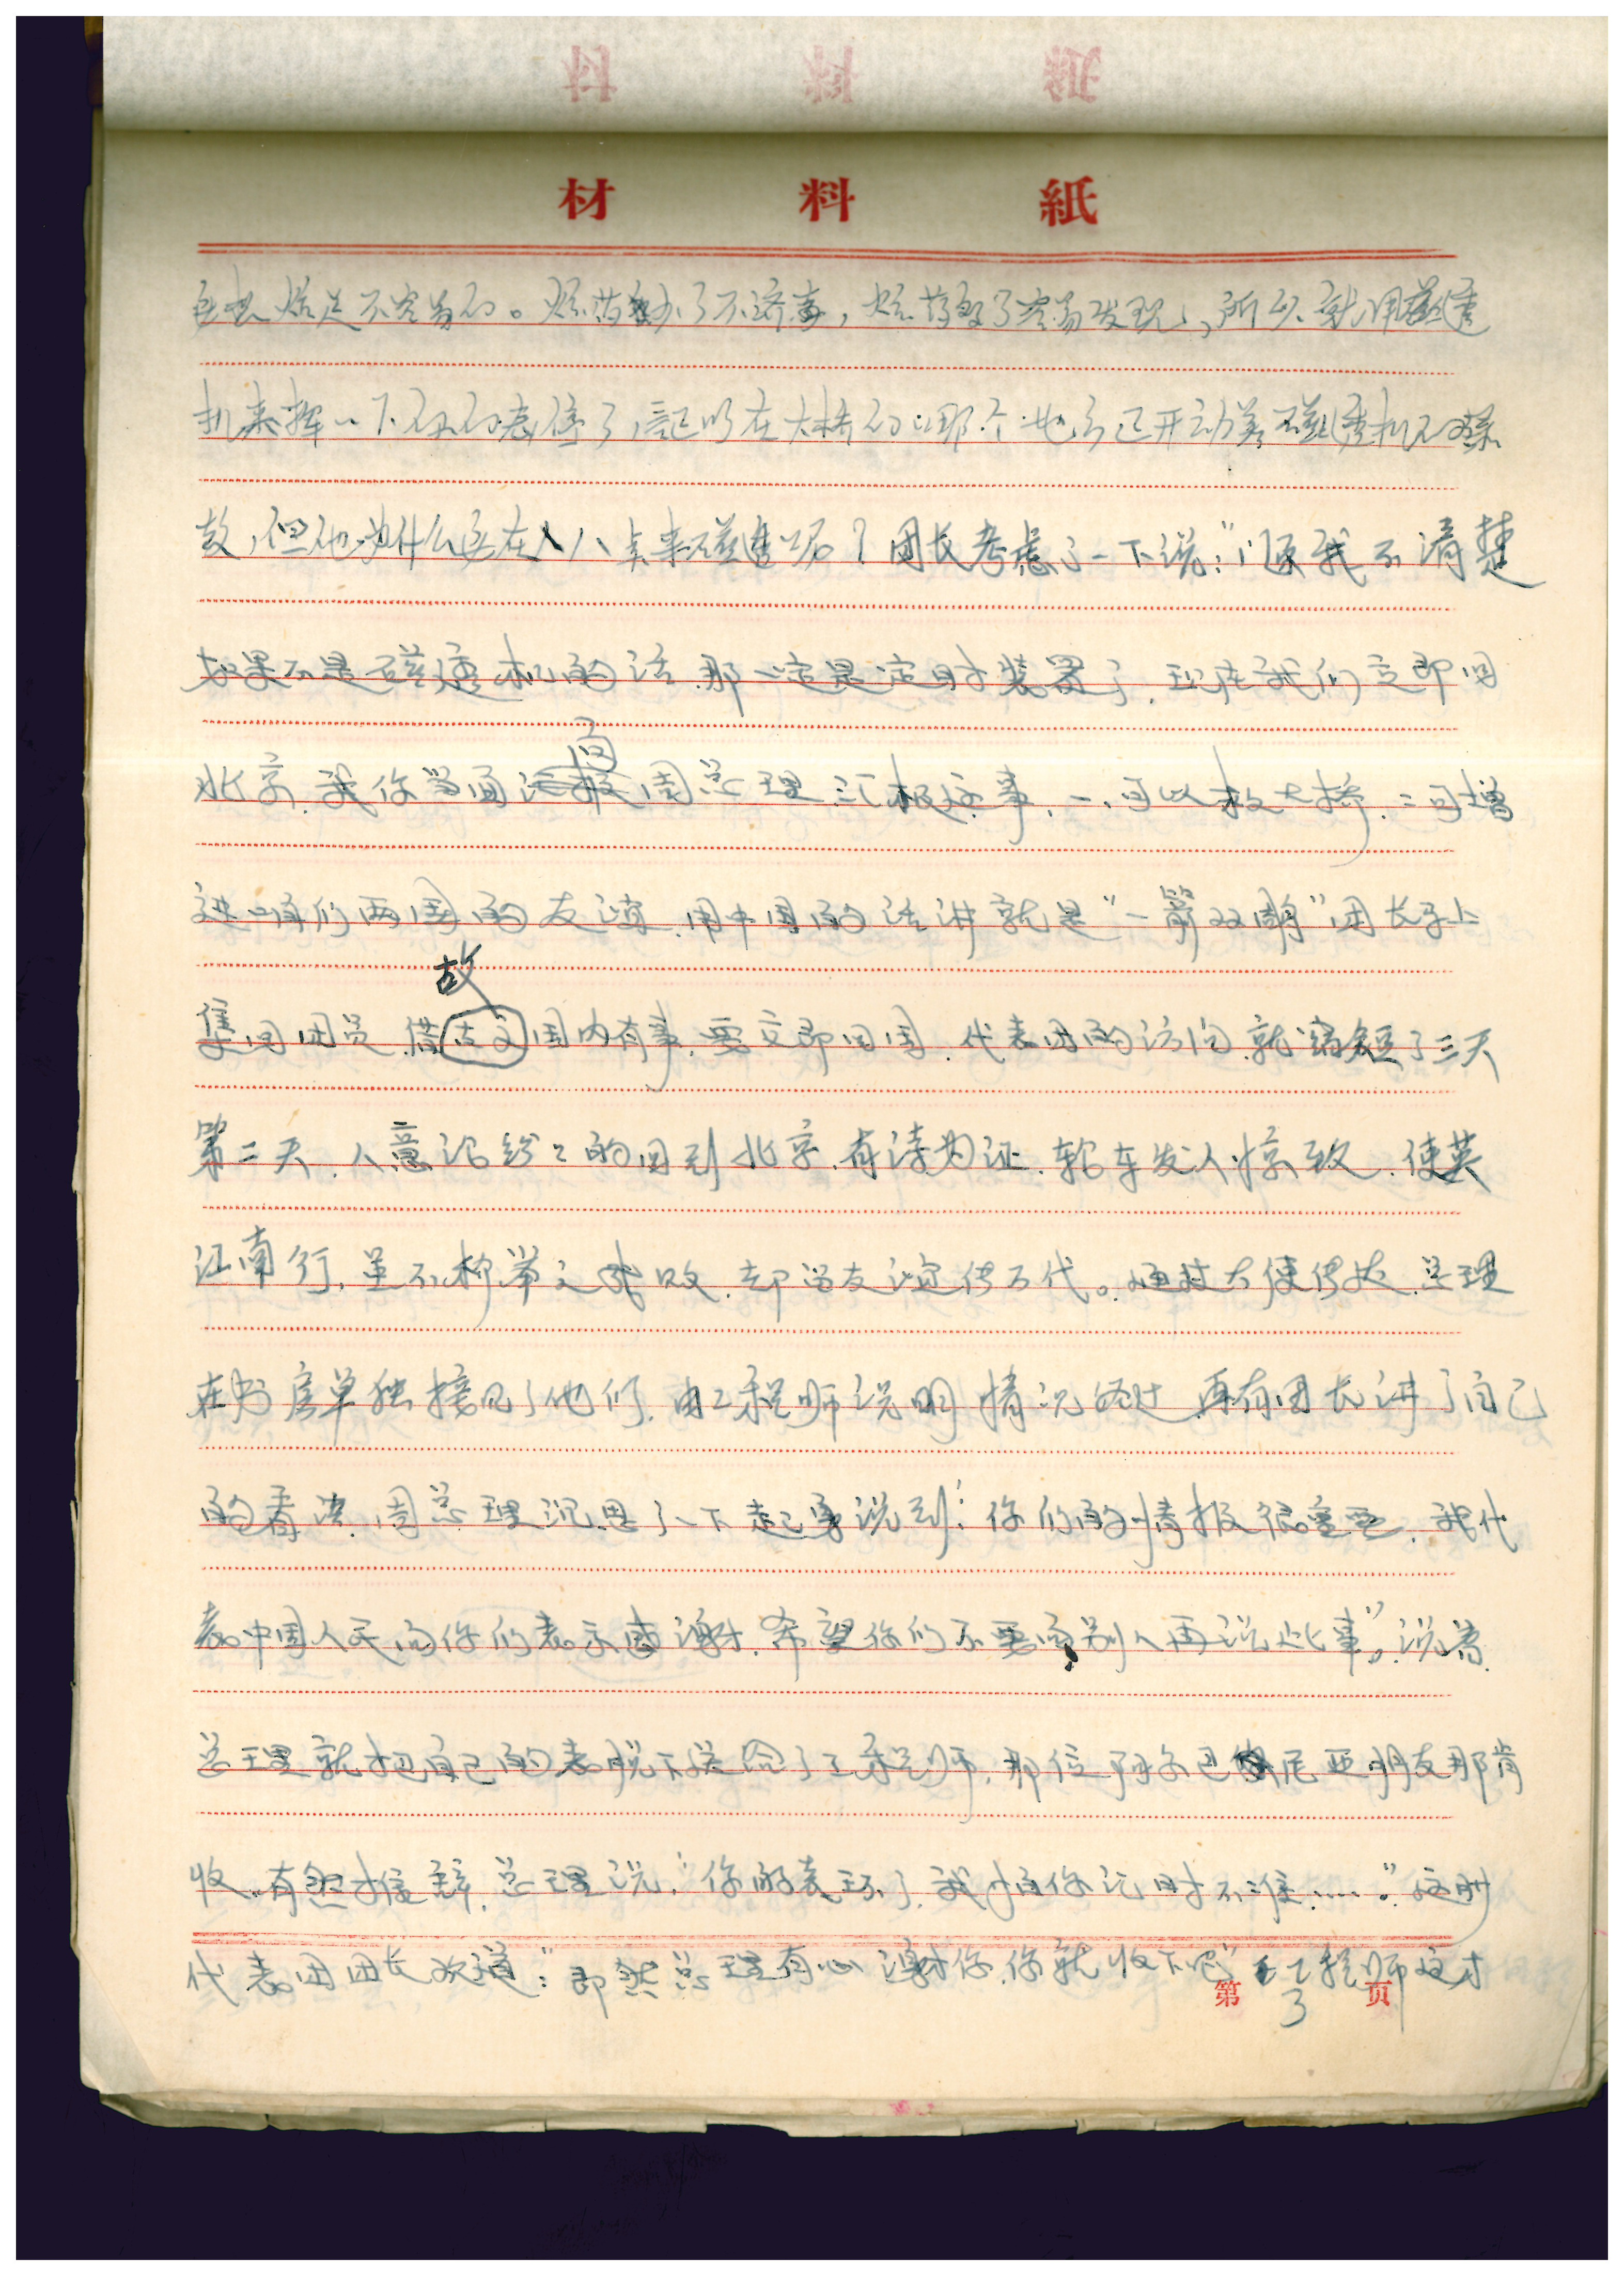 材 料 紙
炸是不容易的。炸药少了不济事，炸药多了容易发现，所以就用磁
机来 一下 的表停了，证明在大桥的那个地方正开动着磁 机的缘
故，但他为什么要在八点来磁 呢？团长考虑了一下说：“这我不清楚
如果不是磁 机的话，那一定是定时装置了，现在我们立即回
北京，我你当面向周总理汇报这事，一、可以救大桥，二可增
进咱们两国的友谊，用中国的话讲就是“一箭双雕”团长马上
集回团员，借故国内有事，要立即回国，代表团的访问，就缩短了三天
第二天，人意 纷纷的回到北京，有诗为证，轮车发人惊致，使英
江南行，虽不 举之成败，却留友谊传万代。通过大使传达，总理
在书房单独接见了他们，由工程师说明情况经过，再有团长讲了自己
的看法，周总理沉思了一下起身说到：“你们的情报很重要，我代
表中国人民向你们表示感谢，希望你们不要向别人再说此事”。说着
总理就把自己的表脱下送给了工程师，那位阿尔巴尼亚朋友那肯
收，有然推辞，总理说：“你的表坏了，我怕你记时不准……”。这时
代表团团长欢道：“即然总理有心谢你，你就收下吧”工程师这才
第 3 页